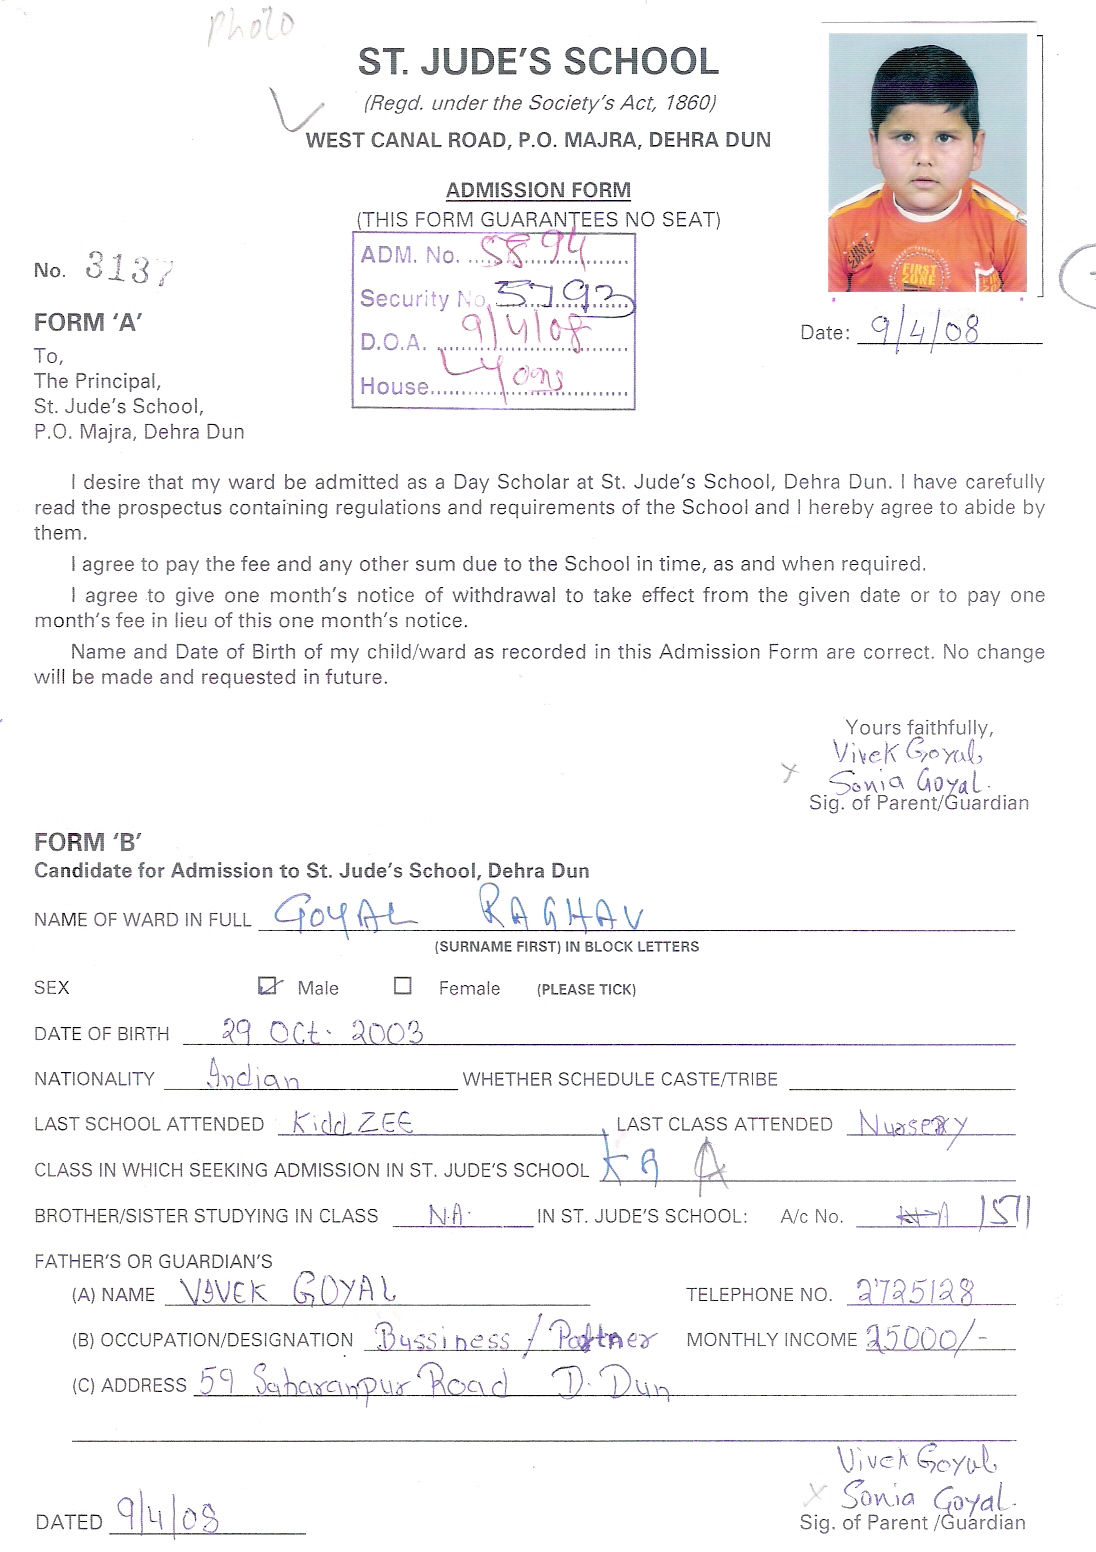 Photo
ST. JUDE'S SCHOOL
(Regd. under the Society's Act, 1860)
WEST CANAL ROAD, P.O. MAJRA, DEHRA DUN
ADMISSION FORM
(THIS FORM GUARANTEES NO SEAT)
ADM. No. 5894
Security No. 5793
D.O.A. 9/4/08
House Lyons
No. 3137
FIRST ZONE
Date: 9/4/08
FORM 'A'
To,
The Principal,
St. Jude's School,
P.O. Majra, Dehra Dun
I desire that my ward be admitted as a Day Scholar at St. Jude's School, Dehra Dun. I have carefully
read the prospectus containing regulations and requirements of the School and I hereby agree to abide by
them.
I agree to pay the fee and any other sum due to the School in time, as and when required.
I agree to give one month's notice of withdrawal to take effect from the given date or to pay one
month's fee in lieu of this one month's notice.
Name and Date of Birth of my child/ward as recorded in this Admission Form are correct. No change
will be made and requested in future.
Yours faithfully,
Vivek Goyal
Sonia Goyal.
Sig. of Parent/Guardian
FORM 'B'
Candidate for Admission to St. Jude's School, Dehra Dun
NAME OF WARD IN FULL GOYAL RAGHAV
(SURNAME FIRST) IN BLOCK LETTERS
SEX Male Female (PLEASE TICK)
DATE OF BIRTH 29 Oct. 2003
NATIONALITY Indian WHETHER SCHEDULE CASTE/TRIBE
LAST SCHOOL ATTENDED Kidd ZEE LAST CLASS ATTENDED Nursery
CLASS IN WHICH SEEKING ADMISSION IN ST. JUDE'S SCHOOL KG A
BROTHER/SISTER STUDYING IN CLASS N.A. IN ST. JUDE'S SCHOOL: A/c No. N-A 1571
FATHER'S OR GUARDIAN'S
(A) NAME VIVEK GOYAL TELEPHONE NO. 2725128
(B) OCCUPATION/DESIGNATION Bussiness / Partner MONTHLY INCOME 25000/-
(C) ADDRESS 59 Saharanpur Road D. Dun
Vivek Goyal
Sonia Goyal.
DATED 9/4/08 Sig. of Parent /Guardian